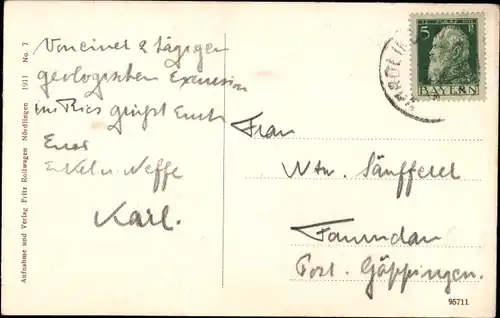 Von einer 2 tägigen
geologischen Excursion
im Ries grüßt Euch
Euer
Enkel u. Neffe
Karl.
Aufnahme und Verlag Fritz Rollwagen Nördlingen 1911 No. 7
5 P
BAYERN
Frau
Wtw. Säufferer
Faurndau
Post. Göppingen.
95711